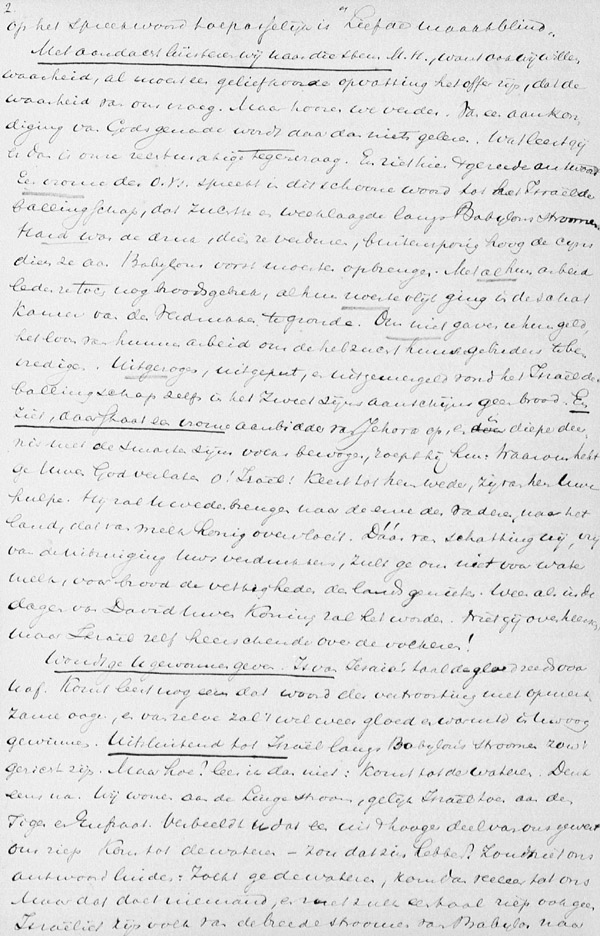 2.
op het spreekwoord toepasselijk is "Liefde maakt blind".
Met aandacht luisteren wij naar die stem M.H., want ook wij willen
waarheid, al moest een geliefkoosde opvatting het offer zijn, dat de
waarheid van ons vraag. Maar hooren we verder. Van een aankon-
diging van Gods genade wordt daar dan niets gelezen. Wat leest gij
er dan is onze rechtmatige tegenvraag. En ziethier 't gereede antwoord
Een vrome der O.B. spreekt in dit schoone woord tot het Israël der
ballingschap, dat zuchtte en weeklaagde langs Babylons stroomen
Hard was de druk, dien ze verduren, buitensporig hoog de cijns
dien ze aan Babylons vorst moesten opbrengen. Met al hun arbeid
leden ze toch nog broodsgebrek, al hun noeste vlijt ging in de schat
kamer van den vreemdeling te gronde. Om niet gaven ze hun geld,
het loon van hunnen arbeid om de hebzucht hunner gebieders te be
vredigen. Uitgezogen, uitgeput, en uitgemergeld vond het Israël der
ballingschap zelfs in het zweet zijns aanschijns geen brood. En
ziet, daar staat een vrome aanbidder van Jehova op, en diep
met de smarten zijns volks bewogen, roept hij hun: Waarom hebt
ge Uwen God verlaten o! Israël! Keert tot hem weder, zij van hem Uwe
hulpe. Hij zal U wederbrengen naar de erve der vaderen, naar het
land, dat van melk en honig overvloeit. Dáár van schatting vrij, vrij
van de uitzuiging Uws verdrukkers, zult ge om niet voor water
melk, voor brood de vettigheden des lands genieten. Weer als in de
dagen van David Uwen Koning zal het worden. Niet gij overheerscht,
maar Israël zelf heerschende over de volkeren!
Wordt ge U gewonnen geven. Is van Jesaia's taal de gloed reeds voor
U af. Komt leest nog eens dat woord der vertroosting met opmerk-
zame oogen, en van zelve zal 't wel weer gloed en warmte in Uw oog
gewinnen. Uitsluitend tot Israël langs Babylons stroomen zou 't
gericht zijn. Maar hoe? lees ik dan niet: Komt tot de wateren. Denk
eens na. Wij wonen aan de Lingestroom, gelijk Israël toen aan den
Tiger en Eufraat. Verbeeldt U dat een uit 't hooger deel van ons gewest
ons riep Kom tot de wateren – zou dat zin hebben? Zou niet ons
antwoord luiden: Zocht ge de wateren, kom dan veeleer tot ons
Maar dat doet niemand, en met zulk een taal riep ook geen
Israëliet zijn volk van de breede stroomen van Babylon naar